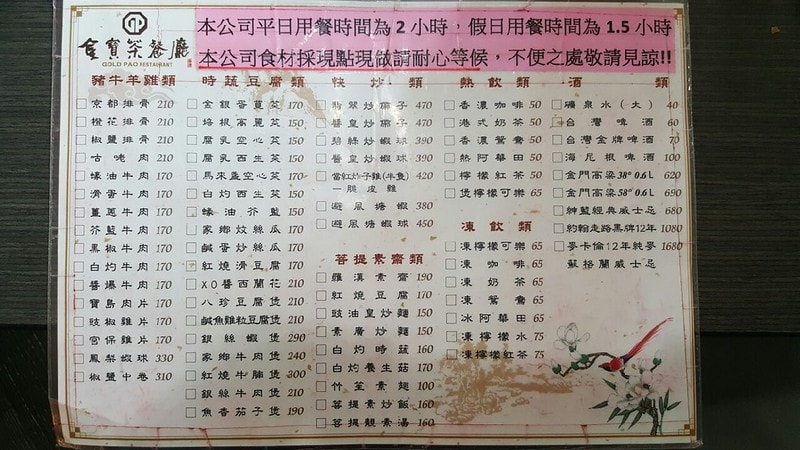 金寶篆餐廳
GOLD PAO RESTAURANT
本公司平日用餐時間為2小時，假日用餐時間為1.5小時
本公司食材採現點現做請耐心等候，不便之處敬請見諒!!
豬牛羊雞類
京都排骨 210
橙花排骨 210
椒鹽排骨 210
咕咾肉 210
蠔油牛肉 170
滑蛋牛肉 170
薑蔥牛肉 170
芥藍牛肉 170
黑椒牛肉 170
白灼牛肉 170
醬爆牛肉 170
寶島肉片 170
豉椒雞片 170
宮保雞片 170
鳳梨蝦球 330
椒鹽中卷 310
時蔬豆腐類
金銀蛋莧菜 170
培根高麗菜 150
腐乳空心菜 150
腐乳西生菜 150
馬來盞空心菜 170
白灼西生菜 150
蠔油芥藍 150
家鄉炆絲瓜 170
鹹蛋炒絲瓜 170
紅燒滑豆腐 170
XO醬西蘭花 210
八珍豆腐煲 210
鹹魚雞粒豆腐煲 210
銀絲蝦煲 290
家鄉牛肉煲 240
紅燒牛腩煲 300
銀絲牛肉煲 210
魚香茄子煲 190
快炒類
翡翠炒偏子 470
醬皇炒偏子 470
碧綠炒蝦球 390
醬皇炒蝦球 390
當紅炸子雞(半隻) 420
—脆皮雞
避風塘蝦 380
避風塘蝦球 450
菩提素齋類
羅漢素齋 190
紅燒豆腐 170
豉油皇炒麵 150
素齋炒麵 150
白灼時蔬 160
白灼養生菇 170
竹笙素麵 100
菩提素炒飯 160
菩提靚素湯 160
熱飲類
香濃咖啡 50
港式奶茶 50
香濃鴛鴦 50
熱阿華田 50
檸檬紅茶 50
煲檸檬可樂 65
凍飲類
凍檸檬可樂 65
凍咖啡 65
凍奶茶 65
凍鴛鴦 65
冰阿華田 65
凍檸檬水 75
凍檸檬紅茶 75
酒類
礦泉水(大) 40
台灣啤酒 60
台灣金牌啤酒 70
海尼根啤酒 100
金門高梁38°0.6L 620
金門高梁58°0.6L 690
紳藍經典威士忌 680
約翰走路黑牌12年 1080
麥卡倫12年純麥 1680
蘇格蘭威士忌